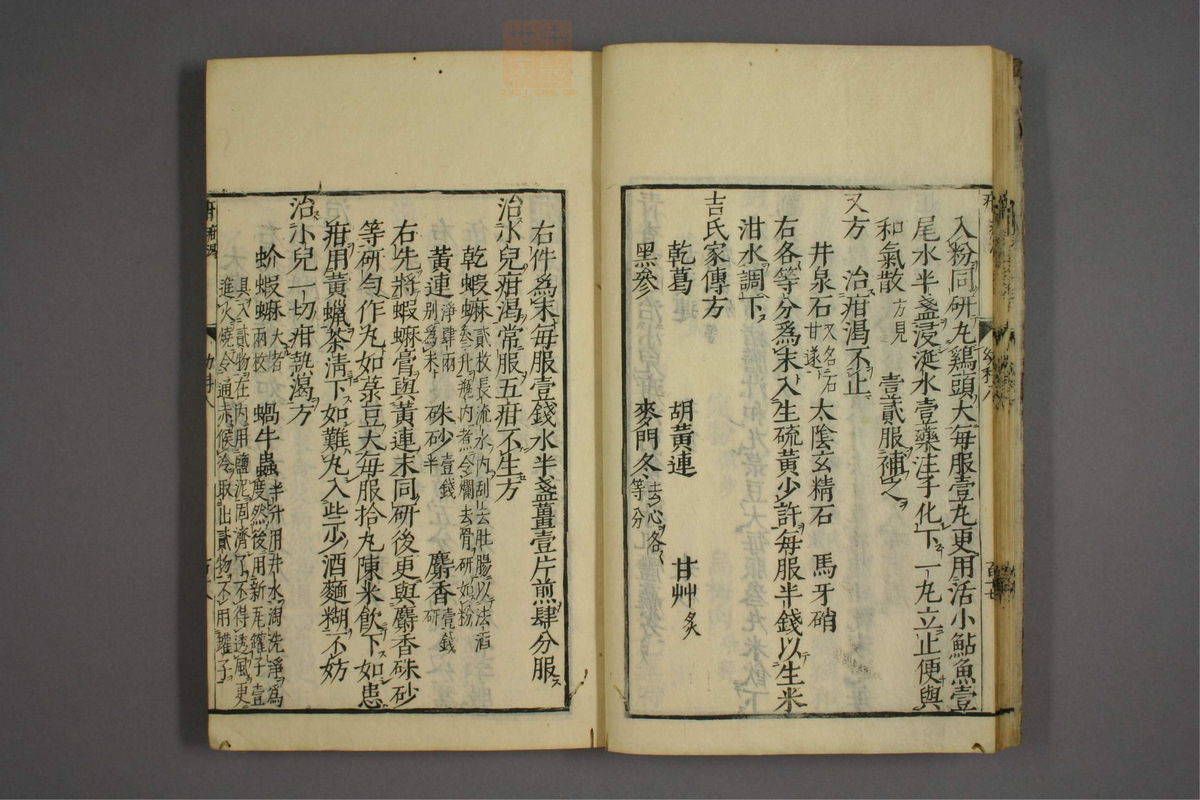 入粉同研丸鷄頭大每服壹丸更用活小鮎魚壹
尾水半盞浸涎水壹藥注子化下一丸立止便與
和氣散方見壹貳服補之
又方治疳渴不止
井泉石又名石甘遂太陰玄精石馬牙硝
右各等分爲末入生硫黃少許每服半錢以生米
泔水調下
吉氏家傳方
乾葛胡黃連甘艸炙
黑參麥門冬去心各等分
右件爲末每服壹錢水半盞薑壹片煎肆分服
治小兒疳渴常服五疳不生方
乾蝦蟆貳枚長流水內刮去肚腸以法酒叁升瓶內煮令爛去骨研如粉
黃連淨肆兩別爲末硃砂壹錢半麝香壹錢研
右先將蝦蟆膏與黃連末同研後更與麝香硃砂
等研勻作丸如菉豆大每服拾丸陳米飮下如患
疳用黃蠟茶淸下如難丸入些少酒麵糊不妨
治小兒一切疳熱渴方
蚧蝦蟆大者兩枚蝸牛蟲半升用井水淘洗淨爲度然後用新瓦罐子壹
具入貳物在內用鹽泥固濟了不得透風更
進火燒令通赤候冷取出貳物不用罐子